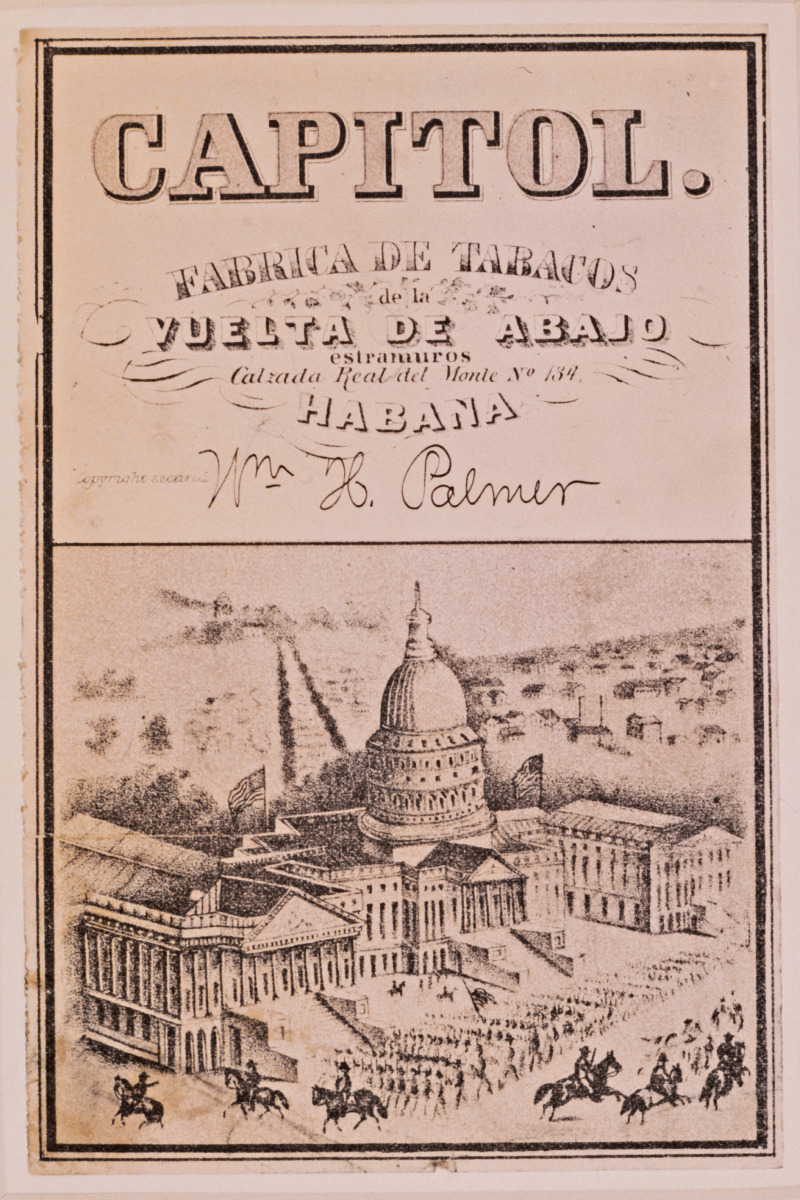 CAPITOL.
FABRICA DE TABACOS
de la
VUELTA DE ABAJO
estramuros
Calzada Real del Monte Nº 134.
HABANA
Copyright secured
Wm H. Palmer